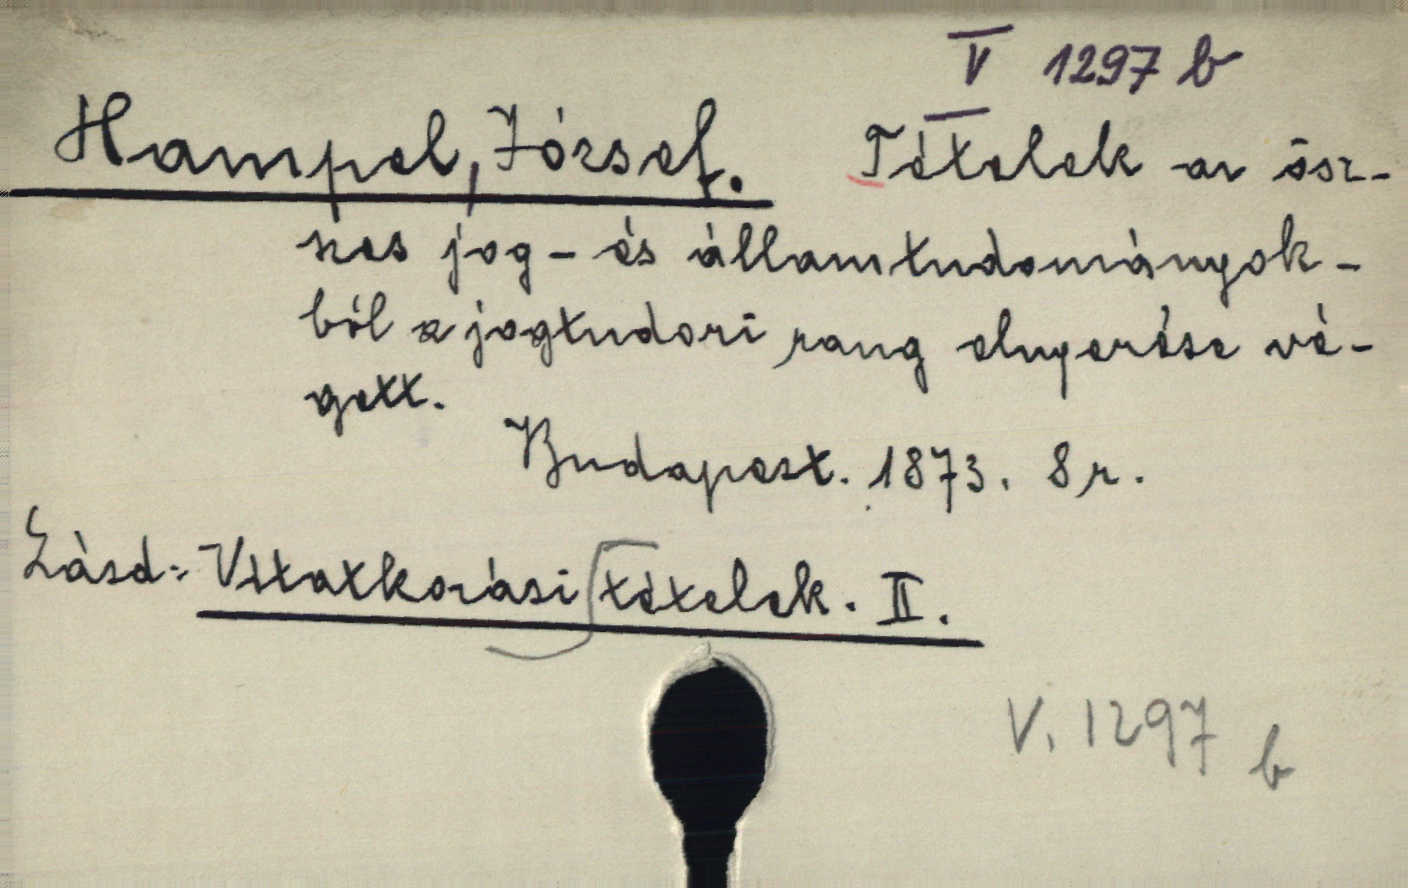 V 1297 b
Hampel, József. Tételek az ösz-
szes jog- és államtudományok-
ból a jogtudori rang elnyerése vé-
gett.
Budapest. 1873. 8r.
Lásd: Vitatkozási tételek. II.
V. 1297 b